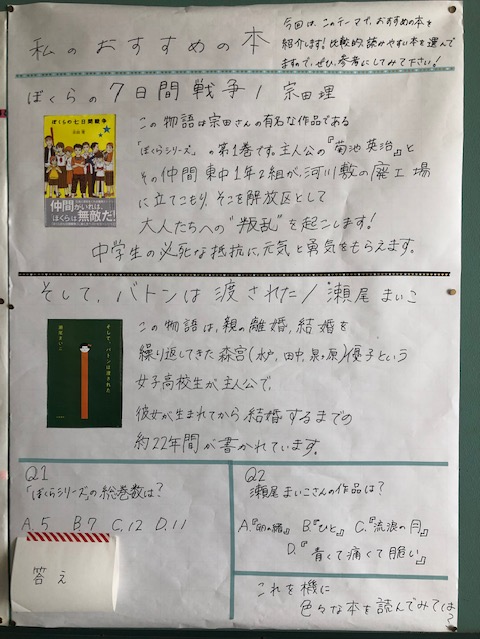 私のおすすめの本
今回は、このテーマで、おすすめの本を
紹介します!比較的読みやすい本を選んで
ますので、ぜひ、参考にしてみて下さい!
ぼくらの7日間戦争/宗田理
ぼくらの七日間戦争
宗田理
仲間がいれば、
ぼくらは無敵だ!
この物語は宗田さんの有名な作品である
「ぼくらシリーズ」の第1巻です。主人公の『菊池英治』と
その仲間東中1年2組が、河川敷の廃工場
に立てこもり、そこを解放区として
大人たちへの"叛乱"を起こします!
中学生の必死な抵抗に、元気と勇気をもらえます。
そして、バトンは渡された/瀬尾まいこ
そして、バトンは渡された
瀬尾まいこ
この物語は、親の離婚、結婚を
繰り返してきた森宮(水戸、田中、泉ヶ原)優子という
女子高校生が主人公で、
彼女が生まれてから結婚するまでの
約22年間が書かれています。
Q1
「ぼくらシリーズ」の総巻数は?
A.5 B.7 C.12 D.11
答え
Q2
瀬尾まいこさんの作品は?
A.『明の緒』 B.『ひと』 C.『流浪の月』
D.『青くて痛くて脆い』
これを機に
色々な本を読んでみては?